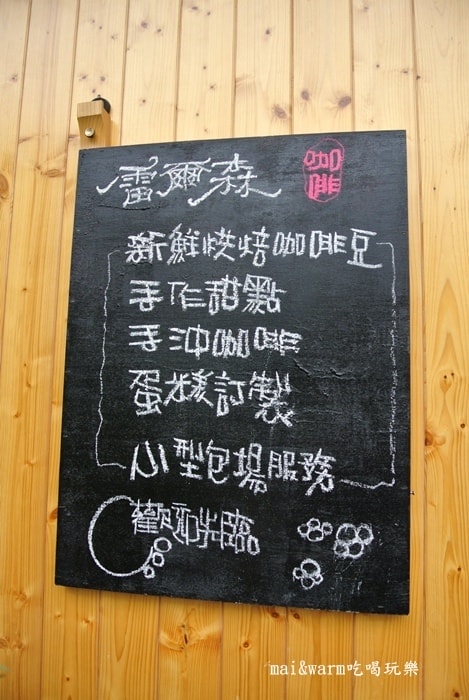 雷爾森 咖啡
新鮮烘焙咖啡豆
手作甜點
手沖咖啡
蛋糕訂製
小型包場服務
歡迎光臨
mai&warm吃喝玩樂